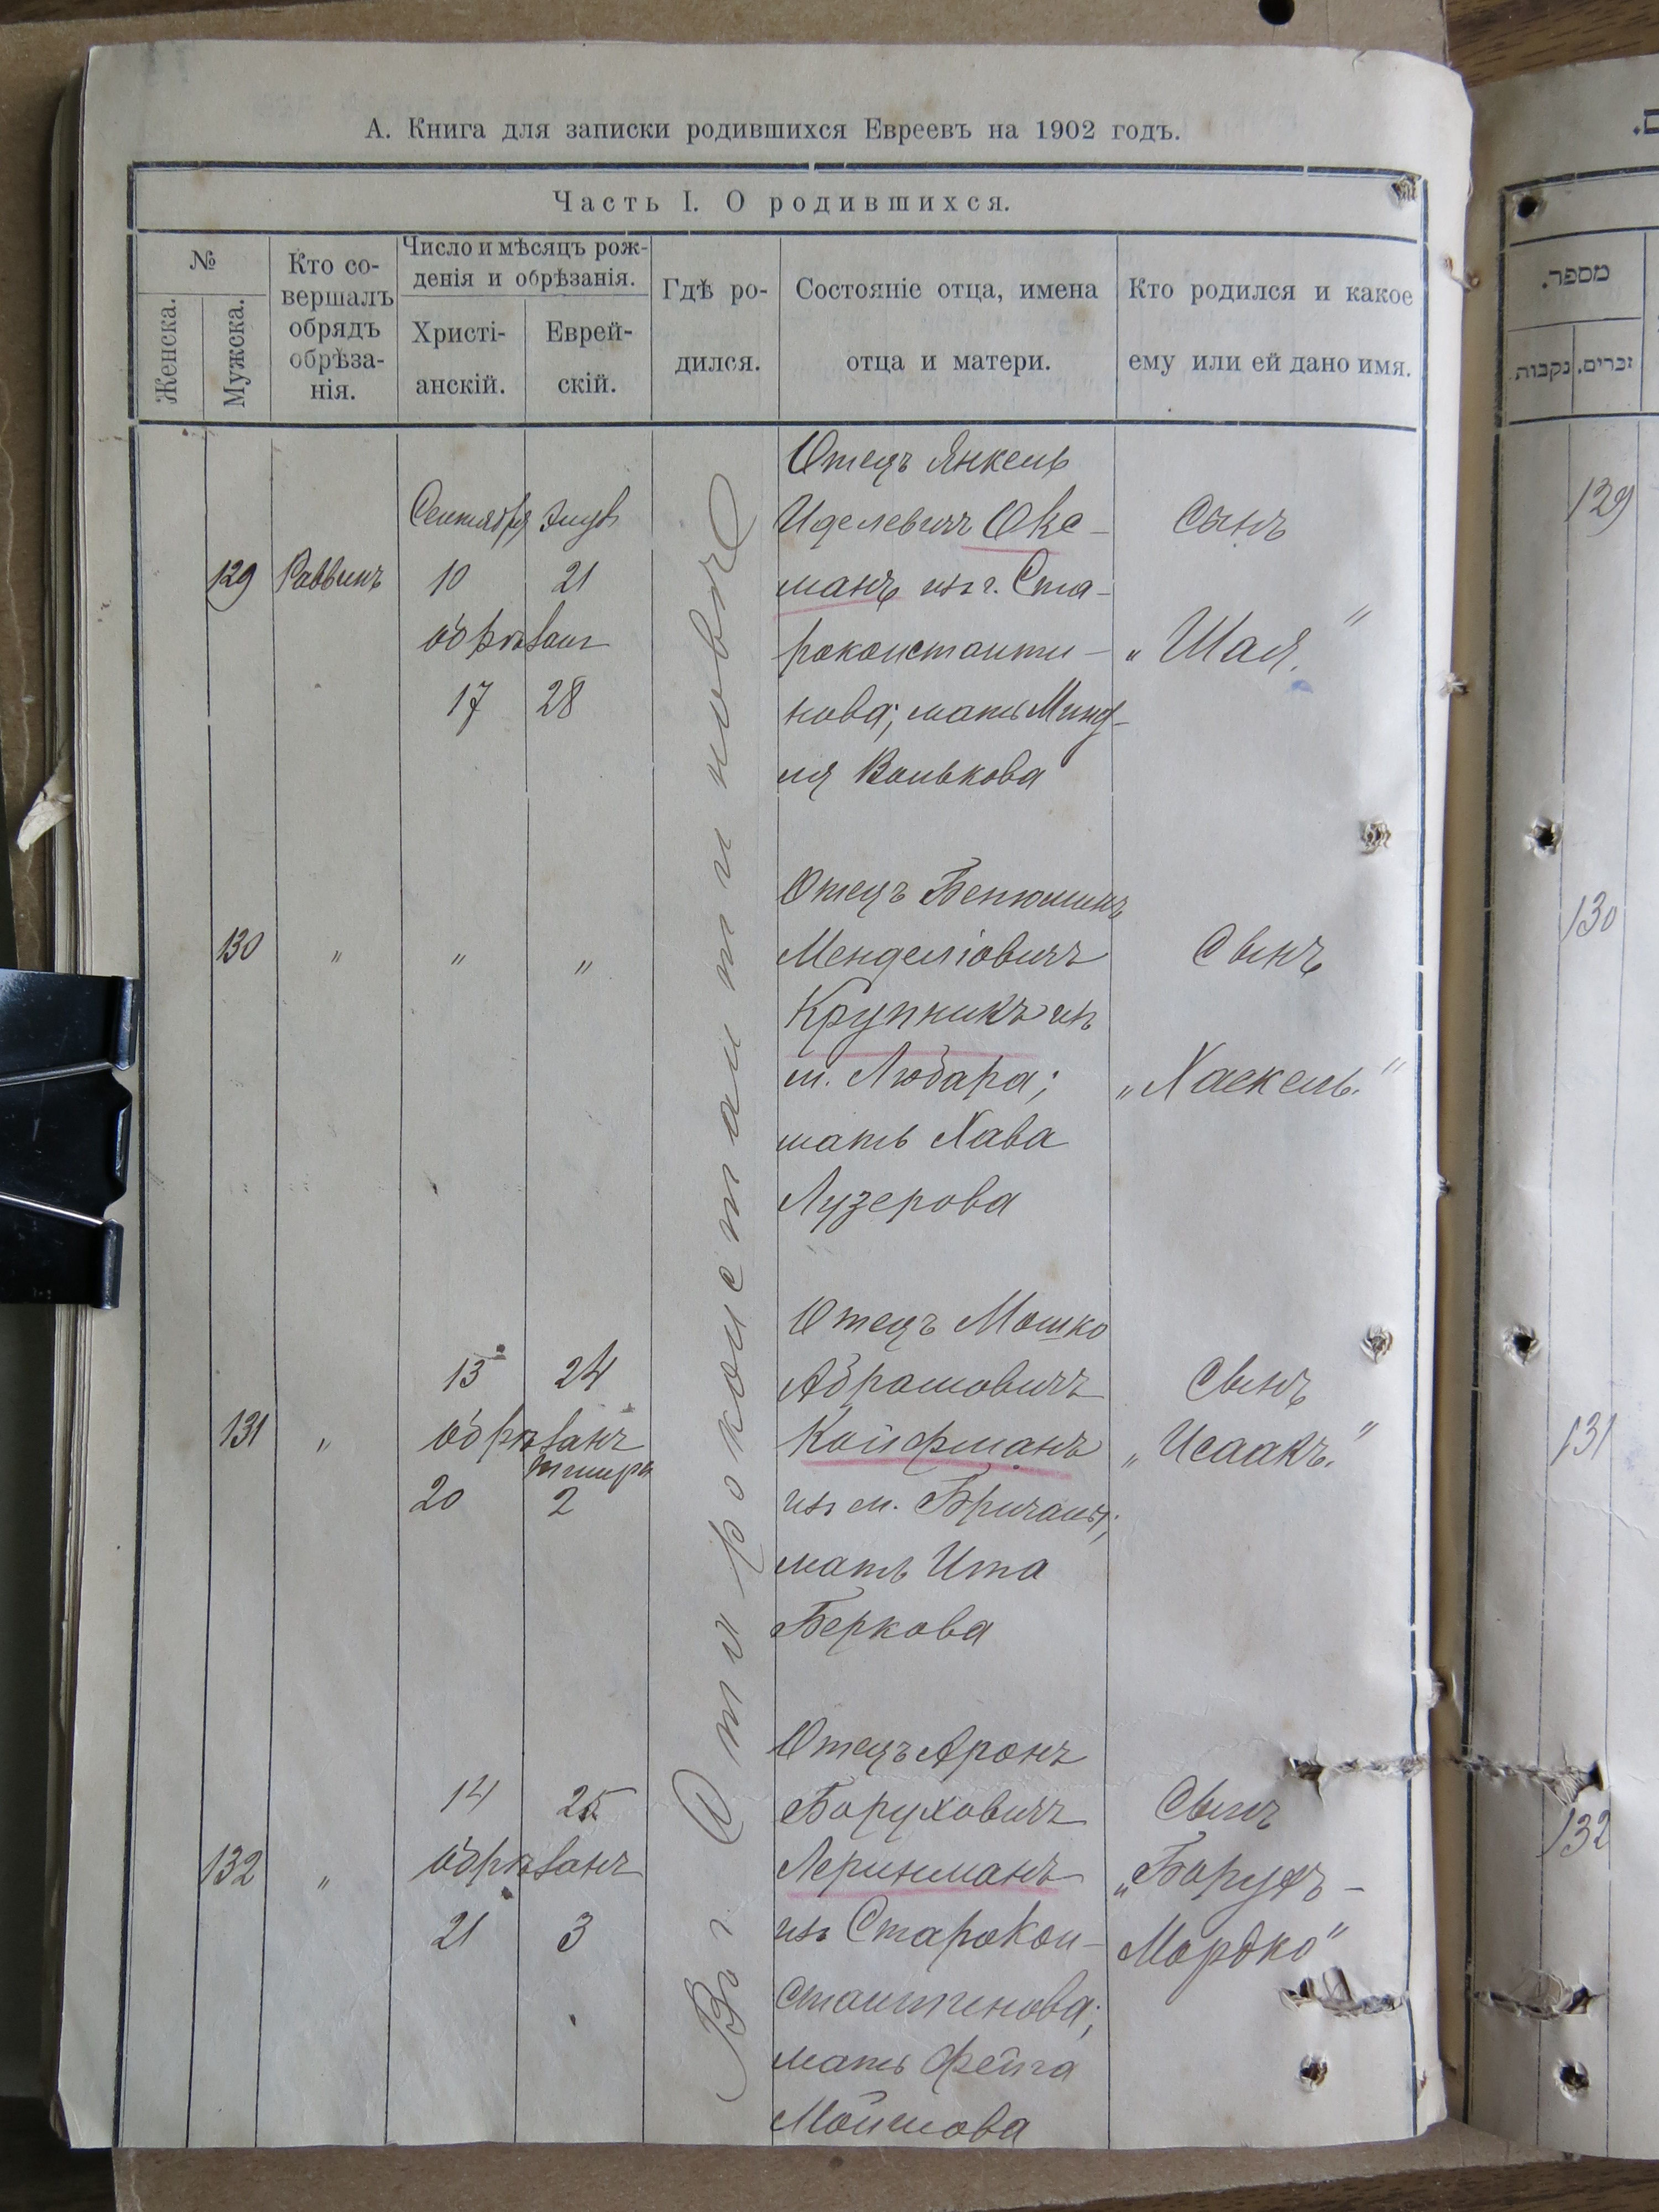 А. Книга для записки родившихся Евреевъ на 1902 годъ.
Часть I. О родившихся.
№
Женска.
Мужска.
Кто со-
вершалъ
обрядъ
обрѣза-
нія.
Число и мѣсяцъ рож-
денія и обрѣзанія.
Христі-
анскій.
Еврей-
скій.
Гдѣ ро-
дился.
Состояніе отца, имена
отца и матери.
Кто родился и какое
ему или ей дано имя.
Въ г. Староконстантиновѣ
129
Раввинъ
Сентября
10
Элуль
21
обрѣзанъ
17
28
Отецъ Янкель
Иделевичъ Окс-
манъ из г. Ста-
роконстанти-
нова; мать Минд-
ля Волькова
Сынъ
„Шая."
130
„
„
„
Отецъ Бенюминъ
Менделіовичъ
Крупникъ из
м. Любара;
мать Хава
Лузерова
Сынъ
„Хаскель."
131
„
13
24
обрѣзанъ
тишри
20
2
Отецъ Мошко
Абрамовичъ
Койфманъ
из м. Бричаны;
мать Ита
Беркова
Сынъ
„Исаакъ."
132
„
14
25
обрѣзанъ
21
3
Отецъ Аронъ
Боруховичъ
Лернманъ
из Старокон-
стантинова;
мать Фейга
Мошкова
Сынъ
„Борухъ-
Мордко"
מספר.
זכרים.
נקבות
129
130
131
132